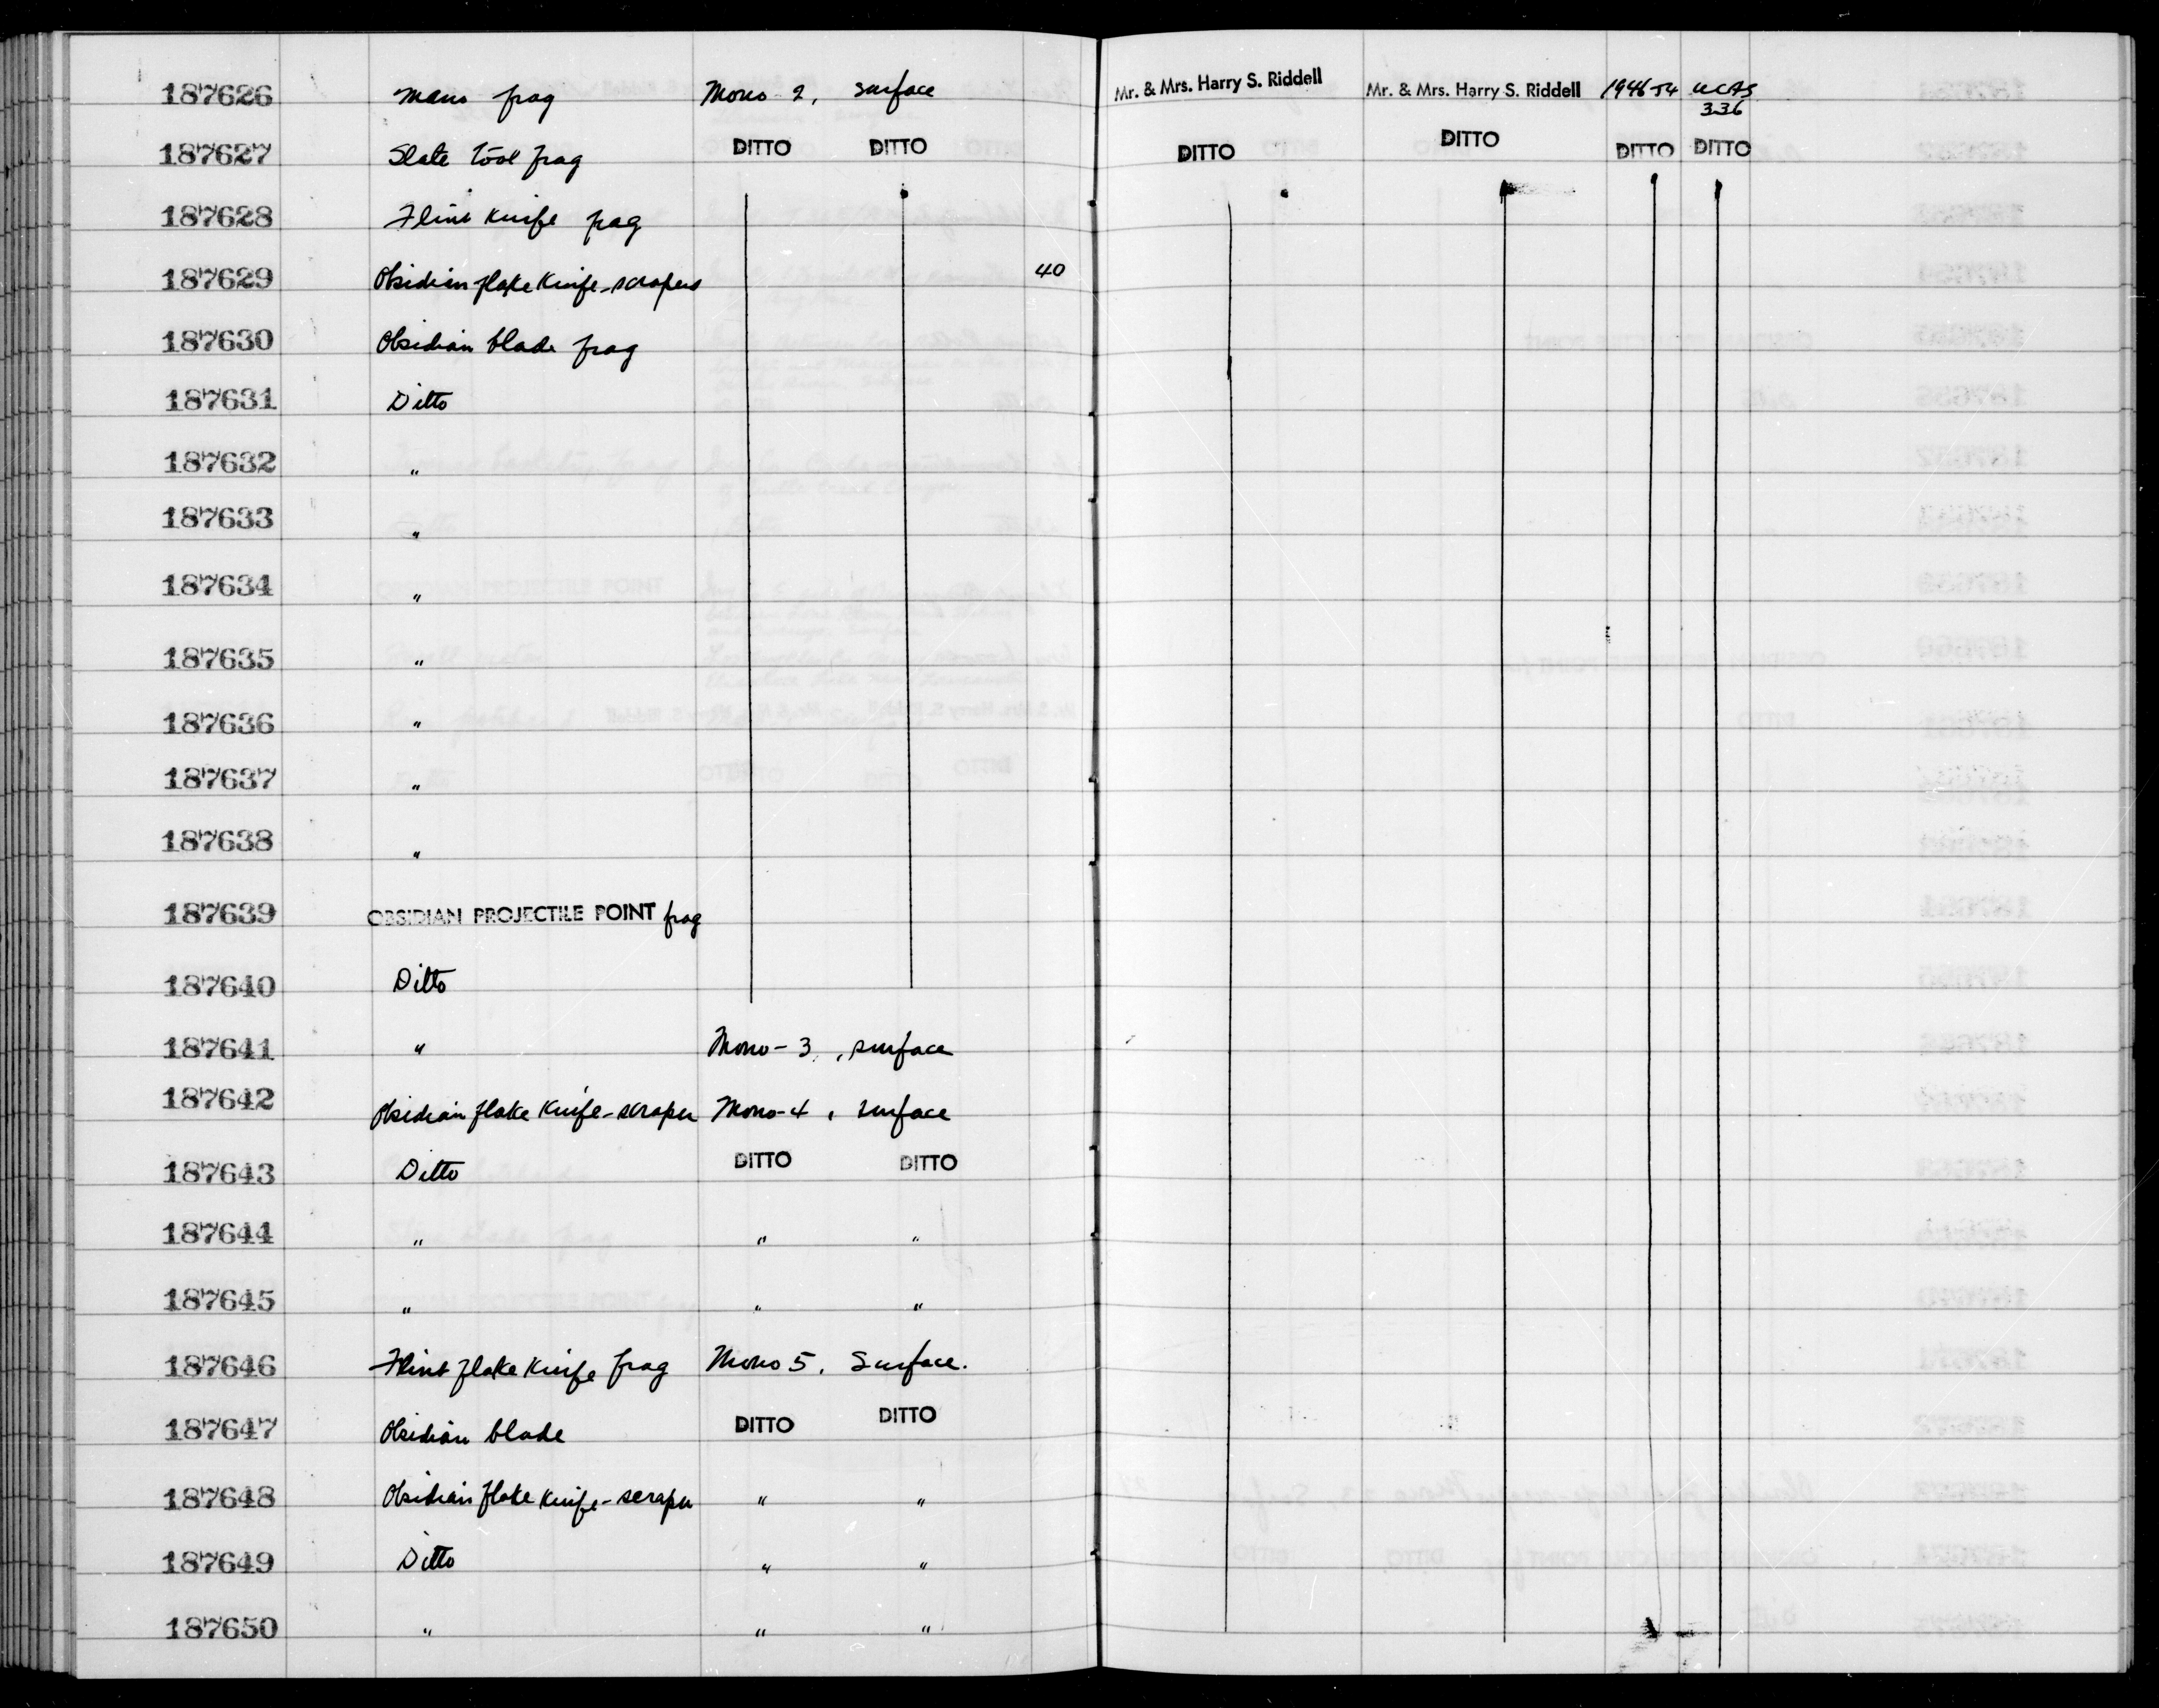 187626 Mano frag Mono 2, surface Mr. & Mrs. Harry S. Riddell Mr. & Mrs. Harry S. Riddell 1946-54 UCAS
336
187627 Slate tool frag DITTO DITTO DITTO DITTO DITTO DITTO
187628 Flint knife frag
187629 Obsidian flake knife-scrapers 40
187630 Obsidian blade frag
187631 Ditto
187632 "
187633 "
187634 "
187635 "
187636 "
187637 "
187638 "
187639 OBSIDIAN PROJECTILE POINT frag
187640 Ditto
187641 " Mono-3, surface
187642 Obsidian flake knife-scraper Mono-4, surface
187643 Ditto DITTO DITTO
187644 " " "
187645 " " "
187646 Flint flake knife frag Mono 5, Surface.
187647 Obsidian blade DITTO DITTO
187648 Obsidian flake knife-scraper " "
187649 Ditto " "
187650 " " "